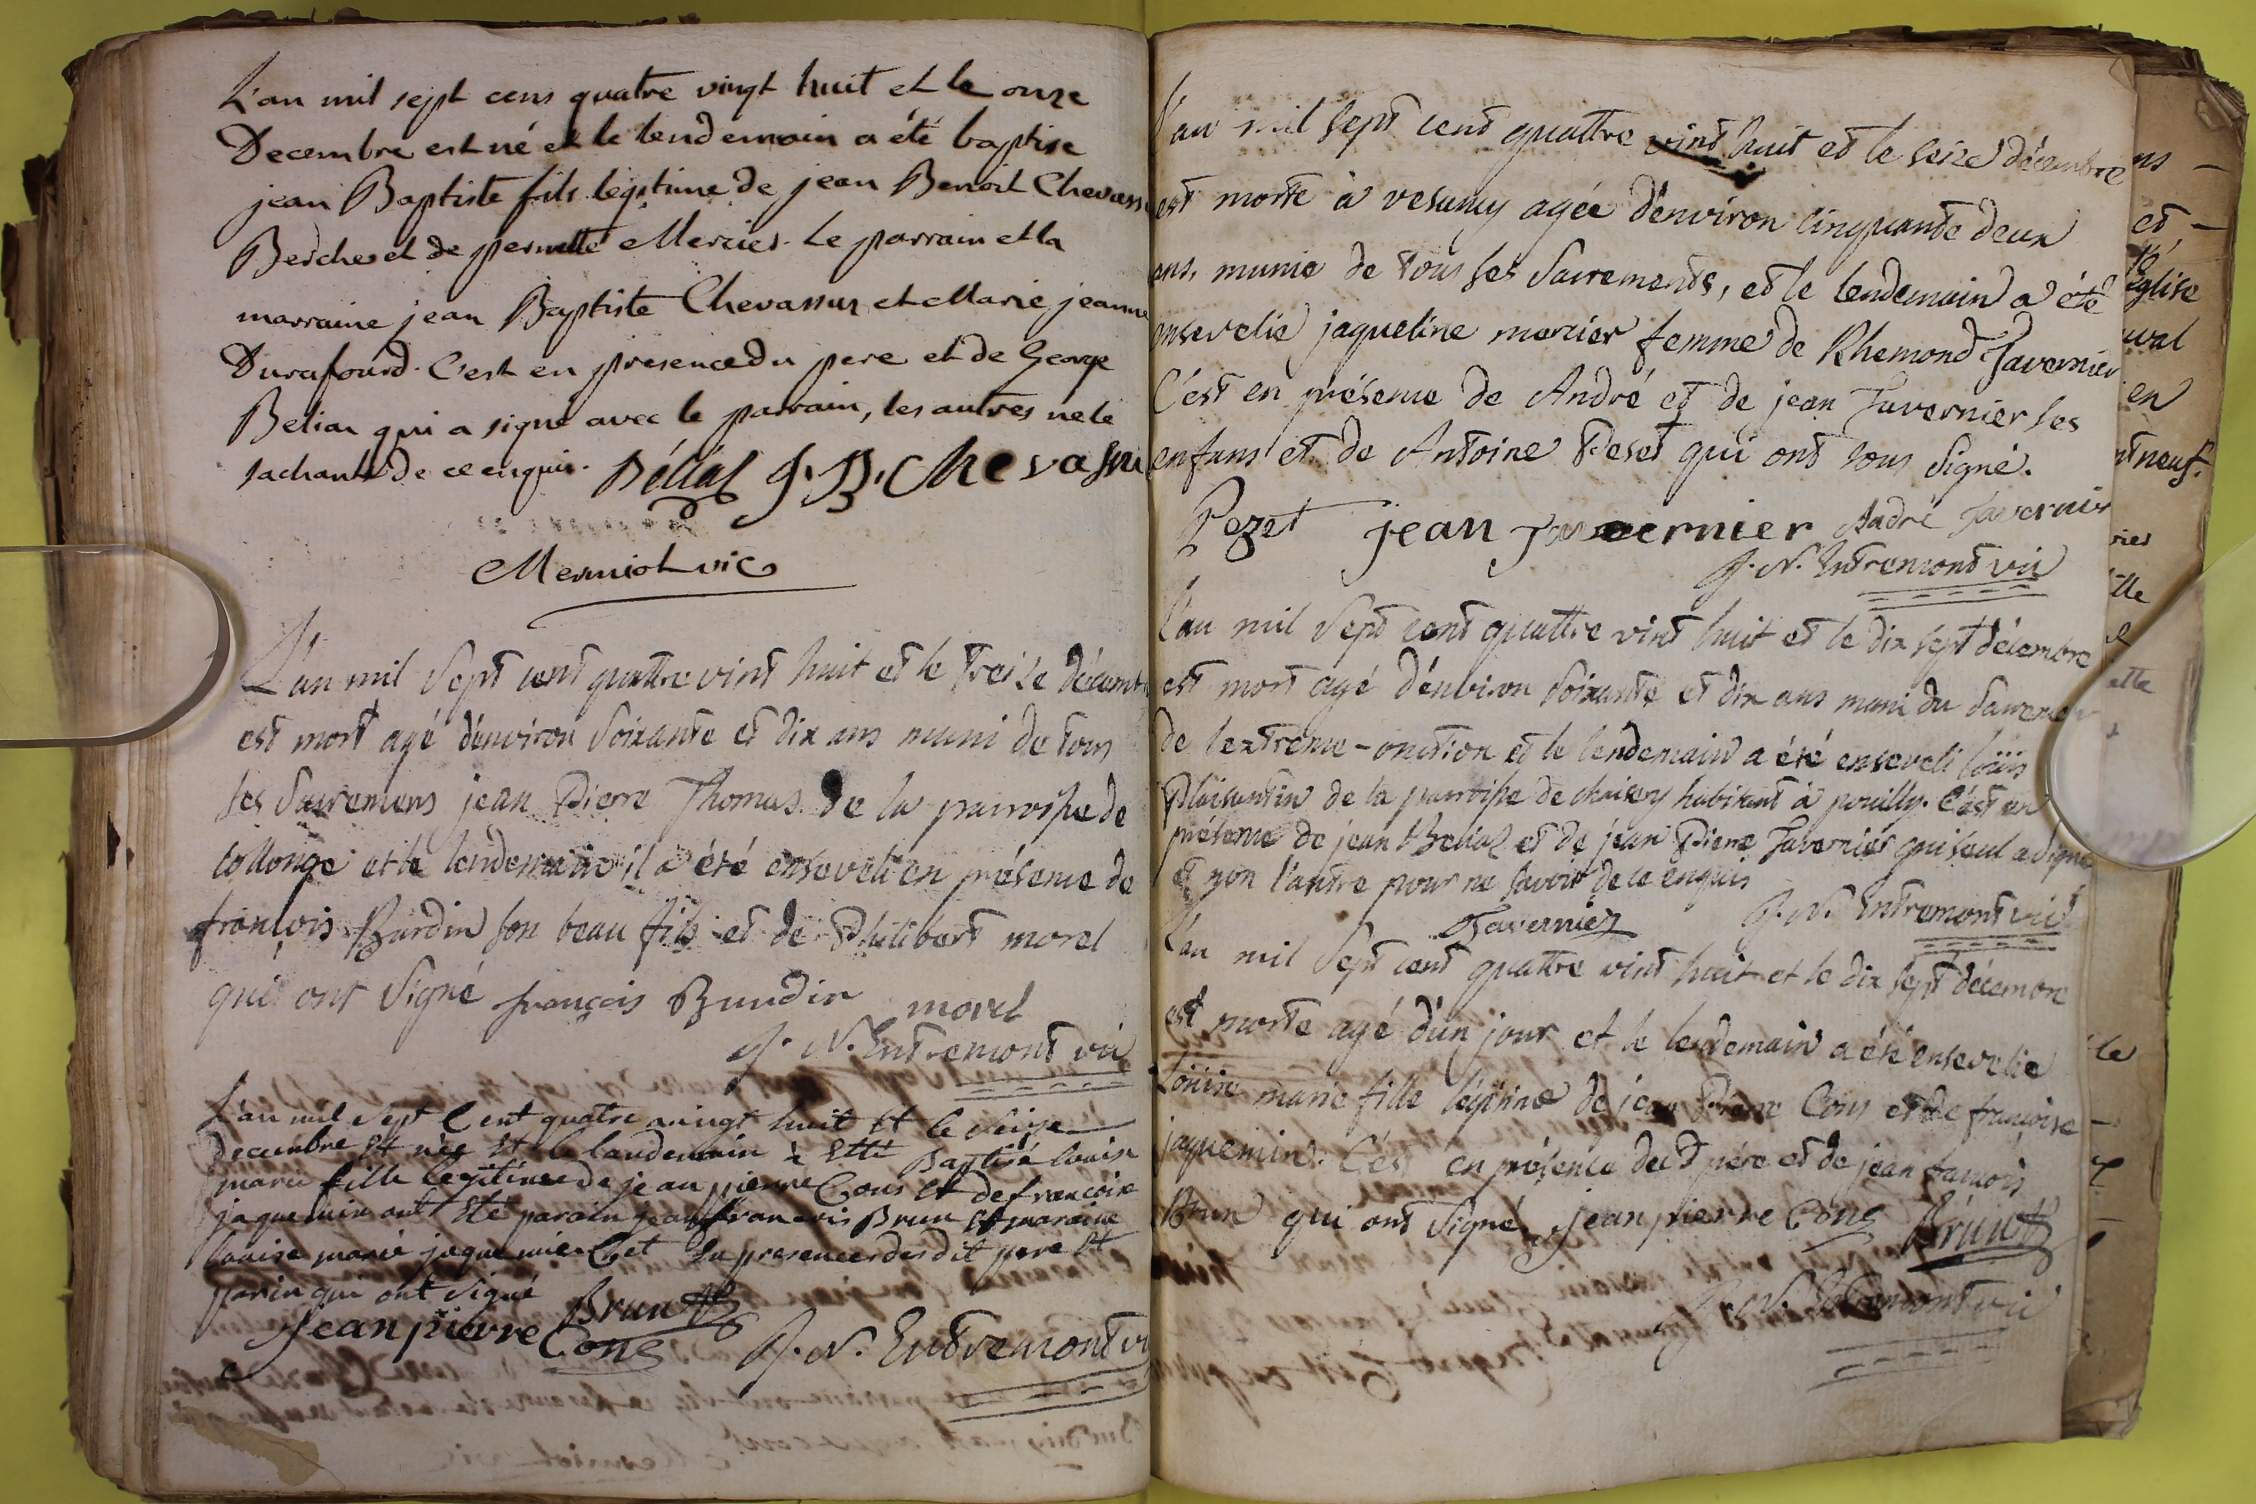 L'an mil sept cens quatre vingt huit et le onze
Decembre est né et le lendemain a été baptise
jean Baptiste fils legitime de jean Benoit Chevass
Bercher et de pernette Mercier. Le parrain et la
marraine jean Baptiste Chevassus et Marie jeanne
Durafourd. C'est en presence du pere et de George
Beliar qui a signé avec le parrain, les autres ne le
sachant de ce enquis. Béliar J. B. Chevassu
Mermiot vic
L'an mil sept cent quattre vint huit et le treize décemb
est mort agé d'environ soixante et dix ans muni de tous
les sacremens jean Pierre Thomas de la parroisse de
collonge et le lendemain il a été enseveli en présence de
françois Burdin son beau fils et de Philibert morel
qui ont signé françois Burdin morel
J. N. Entremont vic
L'an mil sept Cent quatre vingt huit Et le seize
Decembre Et née Et le landemain à Etté Baptisé louise
marie fille legitime de jean pierre Cons Et de francoise
jaquemin ont Eté parain jean francois Brun Et maraine
louise marie jaquemier Cet En presence desdit pere Et
parin qui ont signé
Jean pierre Cons Brun
J. N. Entremont vi
L'an mil sept cent quattre vint huit et le seize décembre
est morte à vesancy agée d'environ cinquante deux
ans, munie de tous les sacrements, et le lendemain a été
ensevelie jaqueline mercier femme de Rhemond Tavernier
C'est en présence de André et de jean Tavernier ses
enfans et de Antoine Peset qui ont tous signé.
Pezet jean Tavernier André Tavernier
J. N. Entremont vic
L'an mil sept cent quattre vint huit et le dix sept décembre
est mort agé d'environ soixante et dix ans muni du sacrement
de lextreme-onction et le lendemain a été enseveli loüis
Plaisantin de la parroisse de chaisery habitant à pouilly. C'est en
présence de jean Beliar et de jean Pierre Tavernier qui seul a signé
et non l'autre pour ne savoir de ce enquis
Tavernier J. N. Entremont vic
L'an mil sept cent quattre vint huit et le dix sept décembre
est morte agé d'un jour et le lendemain a été ensevelie
Loüise marie fille légitime de jean Pierre Cons et de françoise
jaquemin. C'est en présence dud père et de jean francois
Brun qui ont signé. jean pierre Cons Brun
J. N. Entremont vic